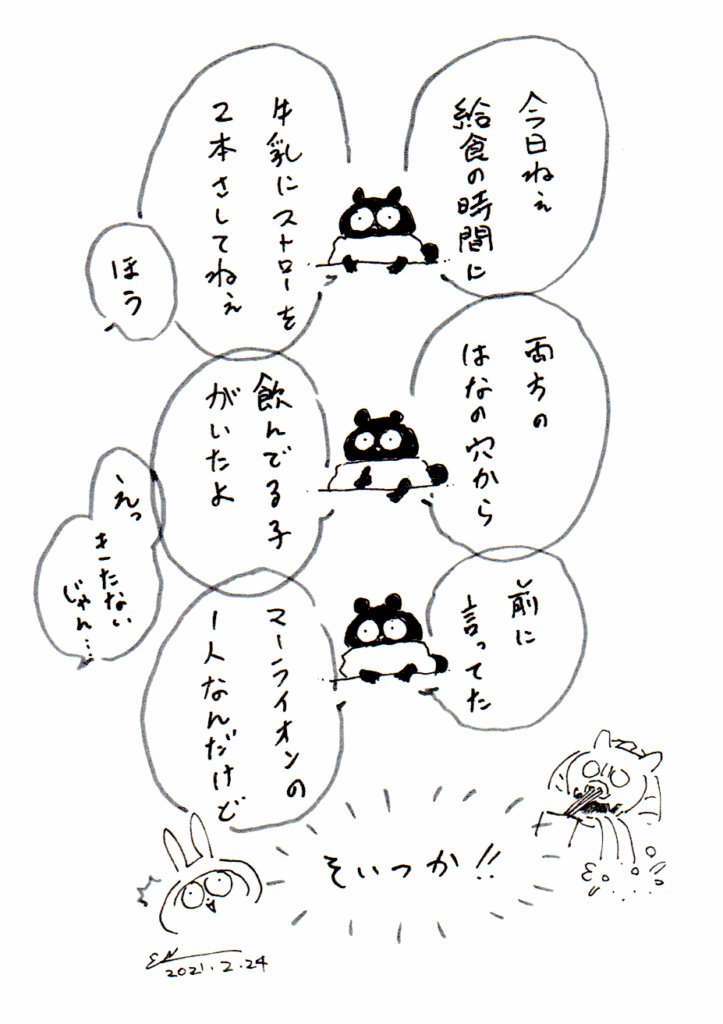 今日ねぇ
給食の時間に
牛乳にストローを
2本さしてねぇ
ほう
両方の
はなの穴から
飲んでる子
がいたよ
えっ
きたない
じゃん…
前に
言ってた
マーライオンの
1人なんだけど
そいつか!!
EN
2021.2.24